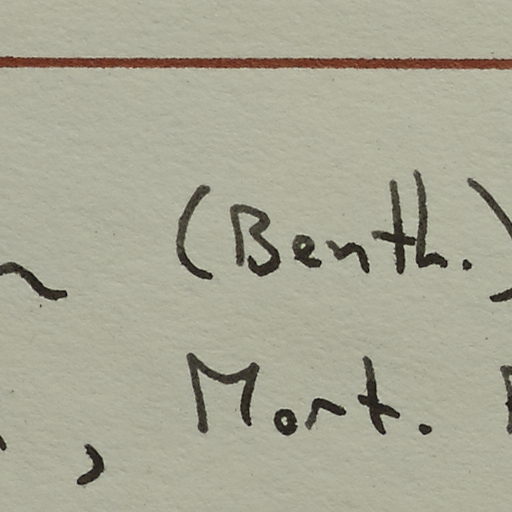 (Benth.)
, Mort.